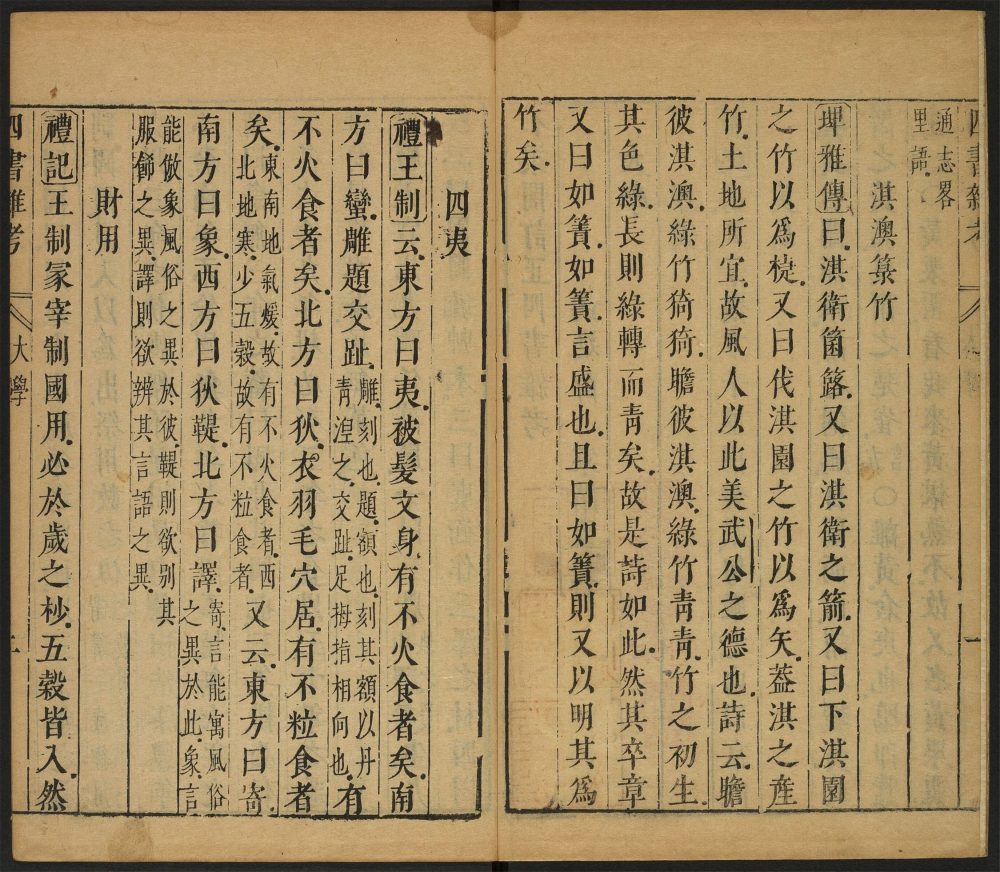 四書雜考
通志畧
里語
淇澳菉竹
埤雅傳曰淇衛箘簵又曰淇衛之箭又曰下淇園
之竹以爲楗又曰伐淇園之竹以爲矢葢淇之產
竹土地所宜故風人以此美武公之德也詩云瞻
彼淇澳綠竹猗猗瞻彼淇澳綠竹靑靑竹之初生
其色綠長則綠轉而靑矣故是詩如此然其卒章
又曰如簀如簀言盛也且曰如簀則又以明其爲
竹矣
四夷
禮王制云東方曰夷被髮文身有不火食者矣南
方曰蠻雕題交趾雕刻也題額也刻其額以丹
靑湼之交趾足拇指相向也有
不火食者矣北方曰狄衣羽毛穴居有不粒食者
矣東南地氣煖故有不火食者西
北地寒少五穀故有不粒食者又云東方曰寄
南方曰象西方曰狄鞮北方曰譯寄言能寓風俗
之異於此象言
能倣象風俗之異於彼鞮則欲别其
服飾之異譯則欲辨其言語之異
財用
禮記王制冢宰制國用必於歲之杪五穀皆入然
四書雜考
大學